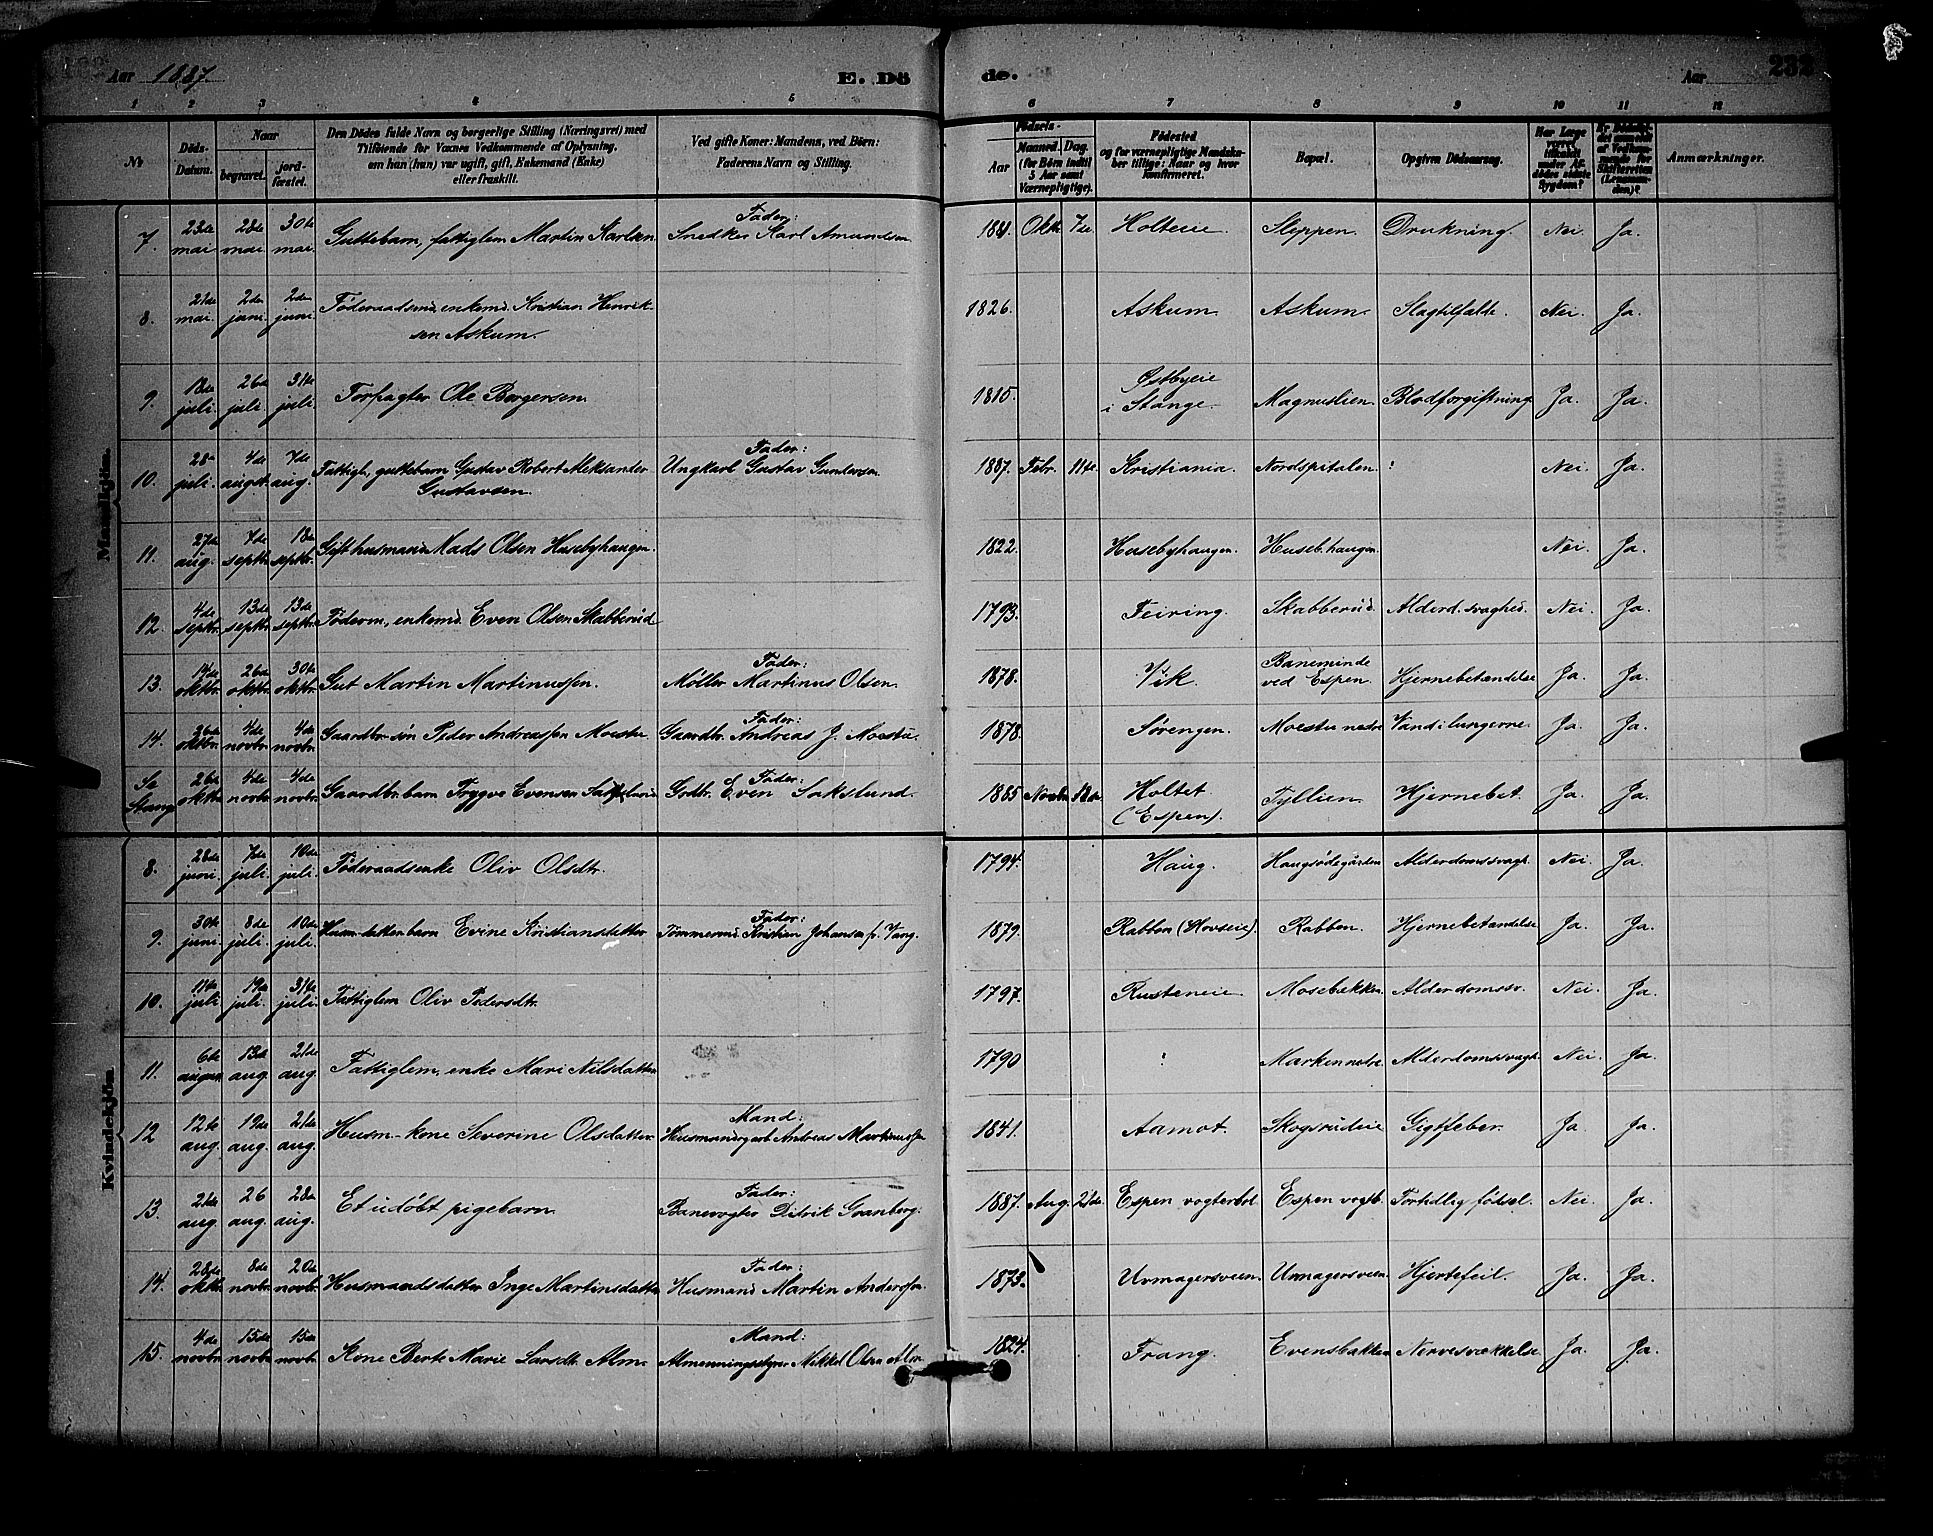 Aar 1887. E. Dö de. Aar 232
1 2 3 4 5 6 7 8 9 10 11 12
№
Döds-Datum.
Naar
begravet.
jord-fæstet.
Den Dødes fulde Navn og borgerlige Stilling (Næringsvei) med
Tilföiende for Voxnes Vedkommende af Oplysning,
om han (hun) var ugift, gift, Enkemand (Enke)
eller fraskilt.
Ved gifte Koner: Mandens, ved Börn:
Faderens Navn og Stilling.
Födsels-
Aar
Maaned. Dag.
(for Börn indtil
5 Aar samt
Værnepligtige).
Födested
og for værnepligtige Mandskaber tillige: Naar og hvor
konfirmeret.
Bopæl.
Opgiven Dödsaarsag.
Har Læge
været
tilkaldt
under Afdödes sidste
Sygdom?
Er Dödsfaldet anmeldt
af Vedkommende for
Skifteretten
(Lensmanden)?
Anmærkninger.
Mandkjön.
7. 23de mai 28de mai 30te mai. Guttebarn, fattiglem Martin Karlsen Fader: Snedker Karl Amundsen 1881. Oktr 7de Holteie Sleppen. Drukning. Nei Ja.
8. 21de mai. 2den juni. 2den juni. Föderaadsmd, enkemd. Kristian Henriksen Askum. 1826. Askum Askum Slagtilfælde. Nei. Ja.
9. 13de juli 26de juli 31te juli. Forpagter Ole Borgersen 1815. Østbyeie i Stange. Magnuslien. Blodforgiftning Ja. Ja.
10. 28de juli. 4de augt. 7de aug. Fattigl. guttebarn Gustav Robert Aleksander Gustavsen. Fader: Ungkarl Gustav Gundersen 1887. Febr. 11te Kristiania. Nordspitalen : Nei. Ja.
11. 27de aug. 7de septbr. 18de septbr. Gift husmand Mads Olsen Husebyhaugen. 1822. Husebyhaugen. Huseb.haugen. Nei. Ja.
12. 4de septbr. 13de septbr. 13de septbr. Föderm., enkemd. Even Olsen Skabberud 1793. Feiring. Skabberud. Alderd.svaghed. Nei. Ja.
13. 14de oktbr. 26de oktbr. 30te oktbr. Gut Martin Martinussen. Fader: Møller Martinus Olsen. 1878. Vik. Baneminde ved Espen. Hjernebetændelse Ja. Ja.
14. 26de oktbr. 4de novbr. 4de novbr. Gaardbr. søn Peder Andreassen Moestu Fader: Gaardbr. Andreas J. Moestu. 1878. Sørengen. Moestu nedre Vand i lungerne Ja. Ja.
Se Stange 26de oktbr. 4de novbr. 4de novbr. Gaardbr. barn Trygve Evensen Sakslund Fader: Grdbr. Even Sakslund. 1885 Novbr. 18de Holtet (Espen). Tyllien. Hjernebet. Ja. Ja.
Kvindekjön.
8. 28de juni. 7de juli. 10de juli. Föderaadsenke Oliv Olsdtr. 1794. Haug. Haugsødegården Alderdomssvagh. Nei. Ja.
9. 30te juni 8de juli 10de juli. Husm-datterbarn Evine Kristiansdatter Fader: Tømmermd. Kristian Johansen fr. Vang. 1879. Rabben (Hovseie). Rabben. Hjernebetændelse Ja. Ja.
10. 11te juli 19de juli. 31te juli. Fattiglem Oliv Pedersdtr. 1797. Rusteneie Mosebækken. Alderdomssv. Nei. Ja.
11. 6te august 13de aug. 21de aug. Fattiglem, enke Mari Nilsdatter 1790 : Marken nedre Alderdomssvagh. Nei. Ja.
12 12te aug. 19de aug. 21de aug. Husm-kone Severine Olsdatter Mand: Husmand Andreas Martinussen 1841. Aamot. Skogsrudeie Gigtfeber. Ja. Ja.
13. 21de aug. 26 aug. 28de aug. Et udöbt pigebarn. Fader: Banevogter Didrik Granberg. 1887. Aug. 21de Espen vogterbol. Espen vogtb. Fortidlig födsel. Nei. Ja.
14. 28de oktbr. 8de novbr. 20de novbr. Husmandsdatter Inge Martinsdatter Fader: Husmand Martin Anderssen. 1873. Urmagersveen. Urmagersveen. Hjertefeil. Ja. Ja.
15. 4de novbr. 15de novbr. 15de novbr. Kone Berte Marie Larsdtr. Alm. Mand: Almenningsstyrer Mikkel Olsen Alm 1824. Frang. Evensbakken Nervesvækkelse Ja. Ja.